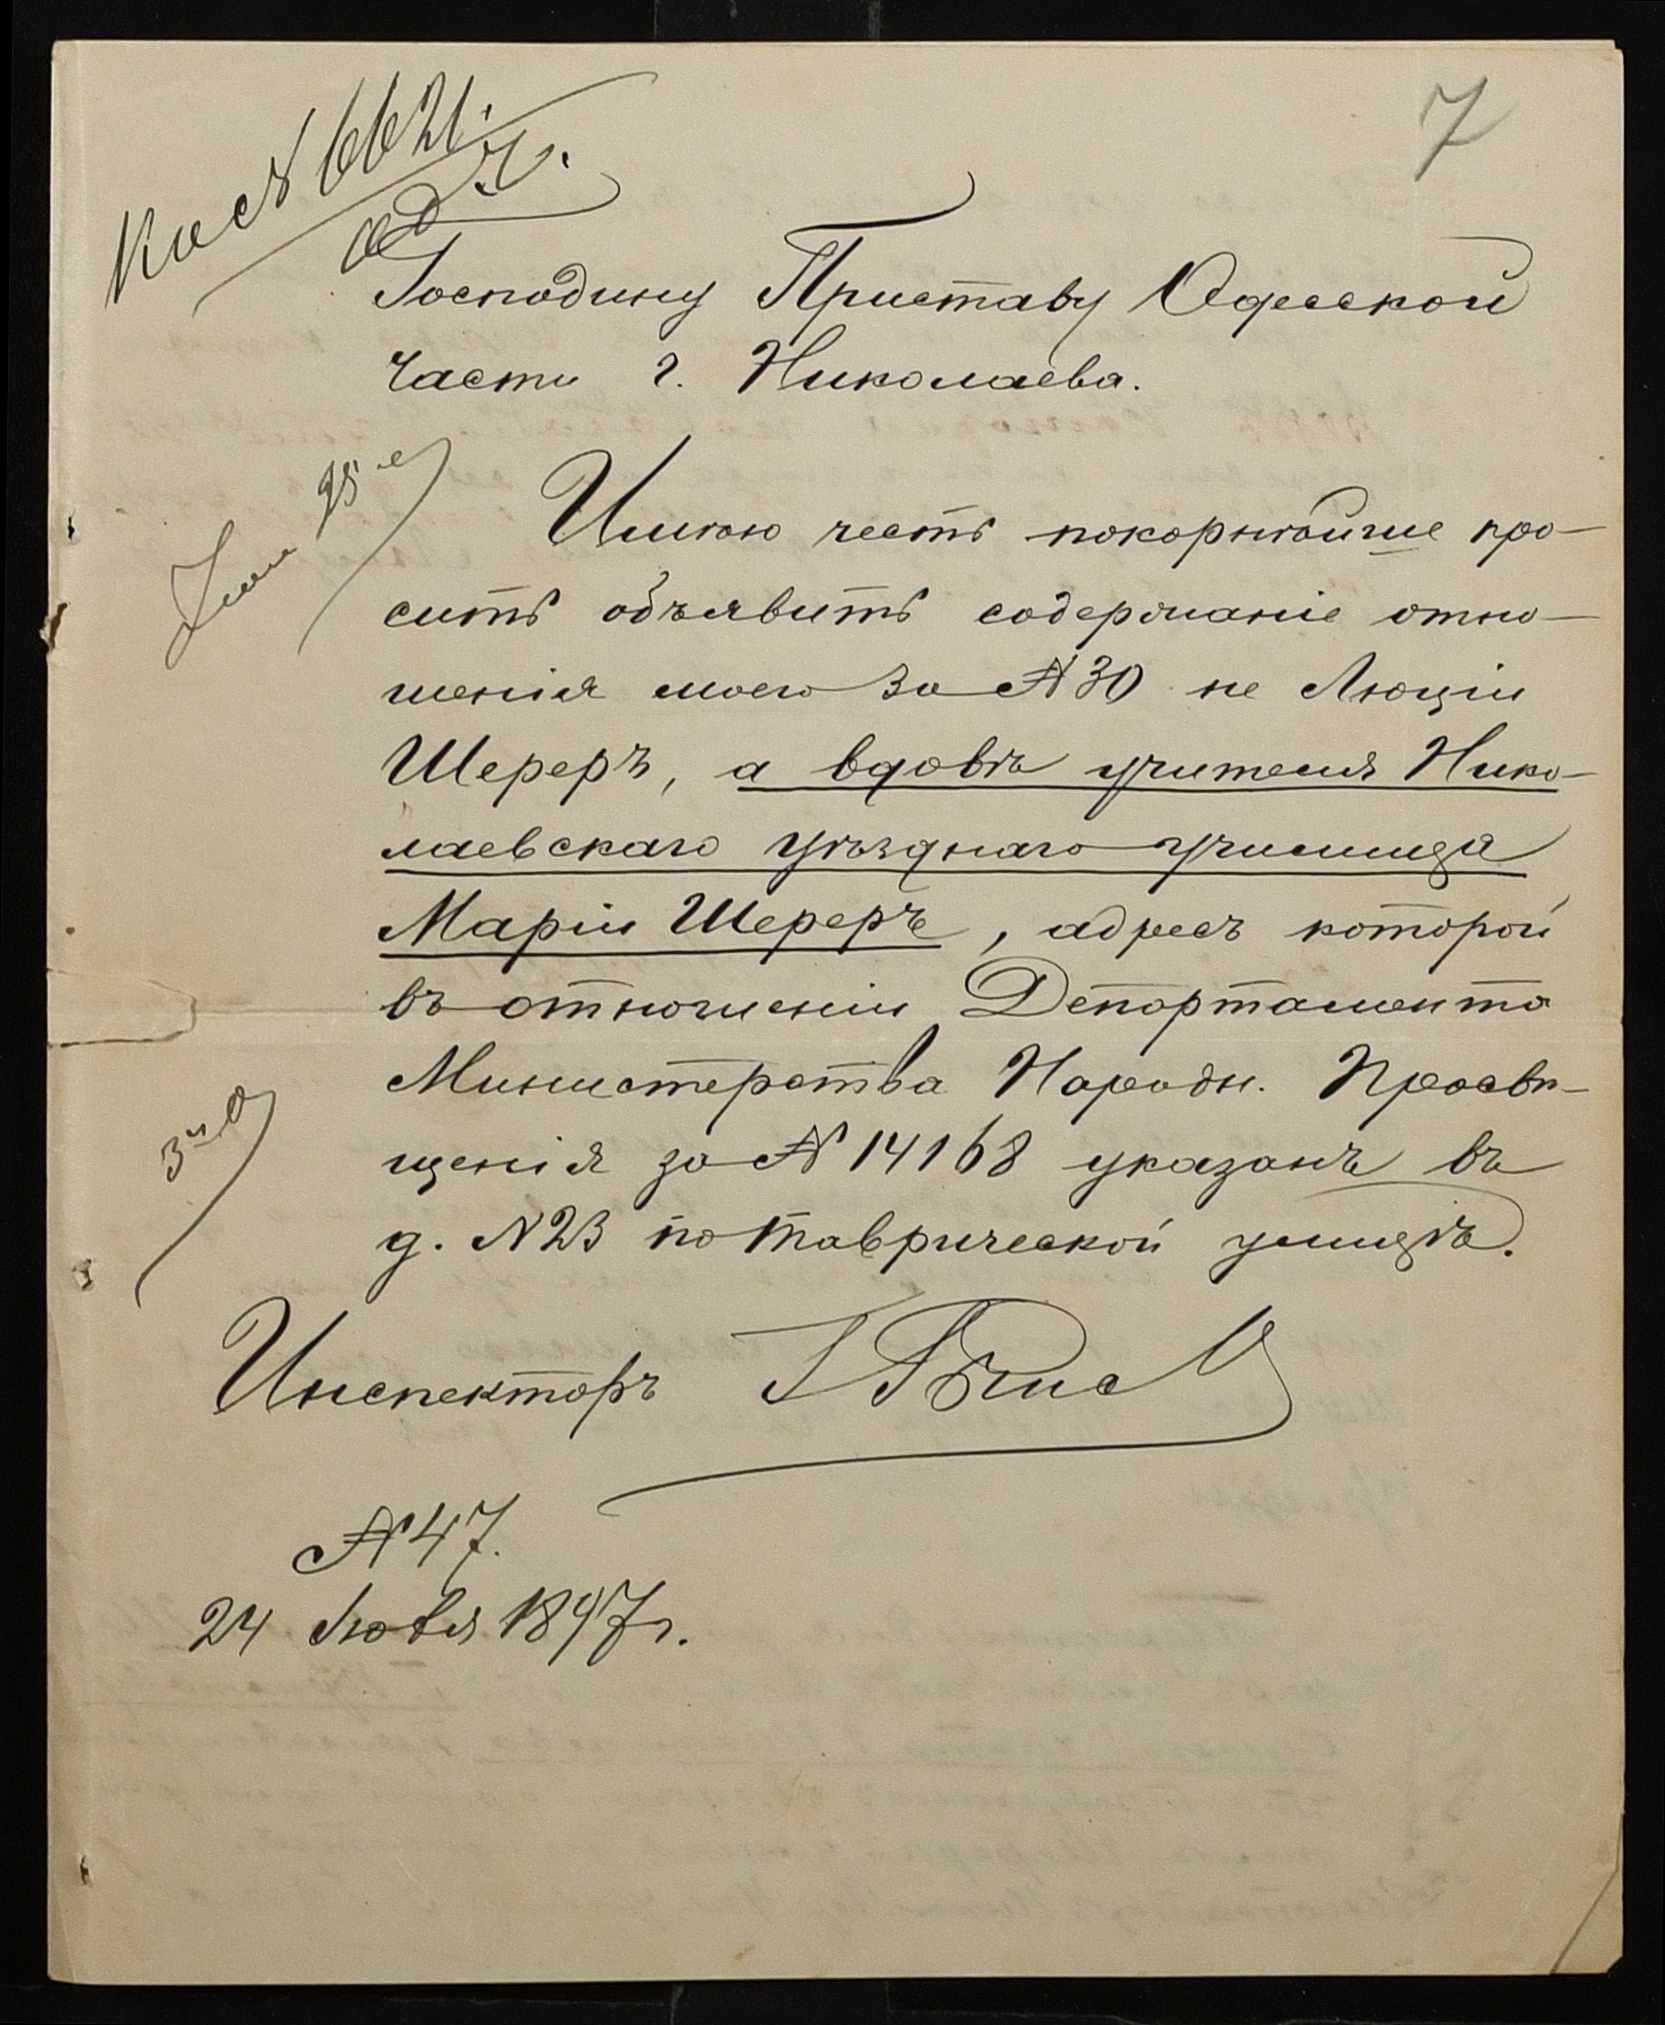 7
6621.
Господину Приставу Одесской
части г. Николаева.
25
Имѣю честь покорнѣйше про-
сить объявить содержаніе отно-
шенія моего за № 30 не Люціи
Шереръ, а вдовѣ учителя Нико-
лаевскаго уѣзднаго училища
Маріи Шереръ, адресъ которой
въ отношеніи Департамента
Министерства Народн. Просвѣ-
щенія за № 14168 указанъ въ
д. № 23 по Таврической улицѣ.
Инспекторъ
№ 47.
24 1897 г.